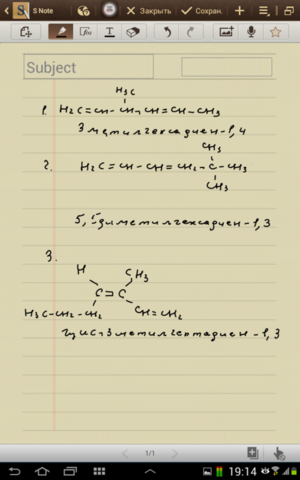 S Note
Закрыть
Сохран.
Subject
H₃C
1. H₂C=CH-CH-CH=CH-CH₃
3 метилгексадиен-1,4
CH₃
2. H₂C=CH-CH=CH₂-C-CH₃
CH₃
5,5диметилгексадиен-1,3
3.
H CH₃
C=C
H₃C-CH₂-CH₂ CH=CH₂
цис-3метилгептадиен-1,3
1/1
19:14